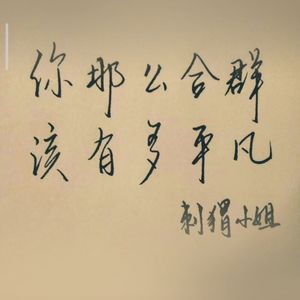 你那么合群
该有多平凡
刺猬小姐